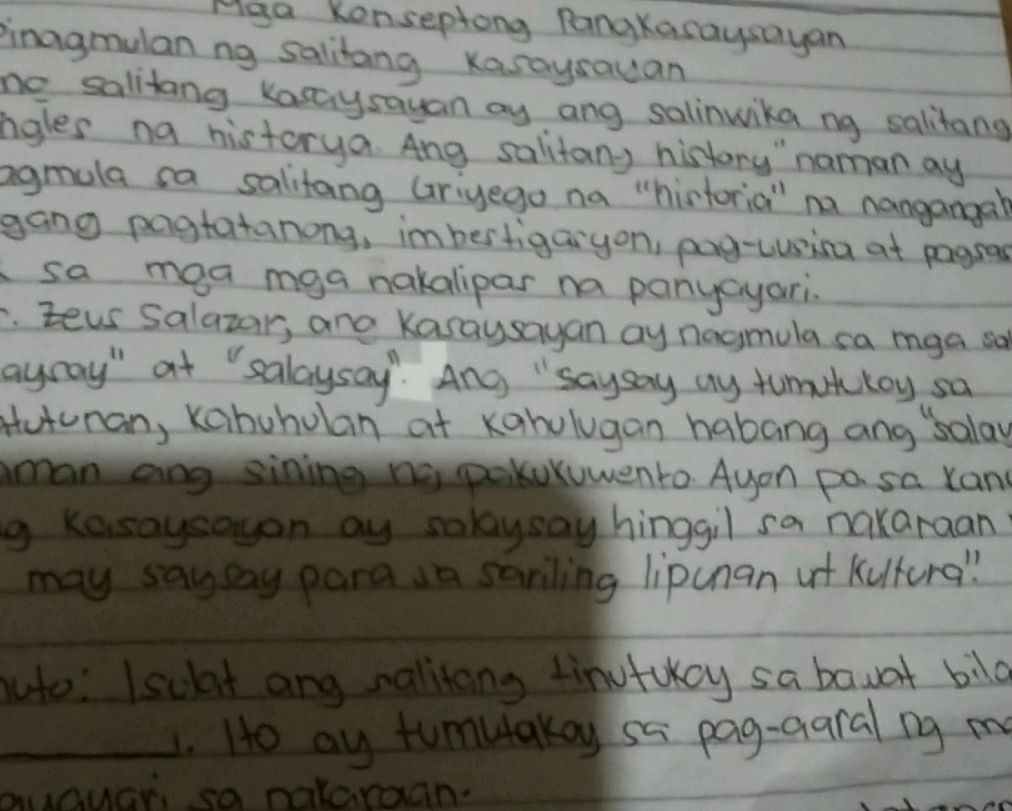 Mga Konseptong Pangkasaysayan
Pinagmulan ng salitang kasaysayan
ng salitang kasaysayan ay ang salinwika ng salitang
ngles na historya. Ang salitang history" naman ay
agmula sa salitang Griyego na "historia" na nangangah
gang pagtatanong, imbestigasyon, pag-uusisa at pagsas
sa mga mga nakalipas na panyayari.
. Zeus Salazar, ang kasaysayan ay nagmula sa mga sal
aysay" at "salaysay". Ang "saysay ay tumutukoy sa
tutunan, kabuhulan at kahulugan habang ang "salay
aman ang sining ng pakukuwento. Ayon pa sa kany
g kasaysayan ay salaysay hinggil sa nakaraan
may saysay para sa sariling lipunan at kultura".
nuto: Isulat ang salitang tinutukoy sa bawat bila
________1. Ito ay tumutukoy sa pag-aaral ng m
ayayari sa nakaraan.